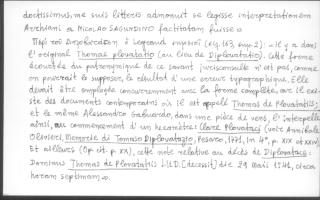 doctissimus, me suis litteris admonuit se legisse interpretationem
Arrhiani a NICOLAO SAGUNDINO factitatam fuisse ».
à Legrand suprascr (pag. 163, sup. 2): « il y a dans
l'original Thomas plovatio (au lieu de Diplovatatio). Cette forme
écourtée du patronymique de ce savant jurisconsulte n'est pas, comme
on pourrait le supposer, le résultat d'une erreur typographique. Elle
devait être employée concurremment avec la forme complète, car il exi-
ste des documents contemporains où il est appelé Thomas de Plovatatiis;
et le même Alessandro Gabuardo, dans une pièce de vers, l'interpelle
ainsi, au commencement d'un hexamètre: Clare Plovataci (voir Annibale
Olivieri, Memorie di Tomaso Diplovatazio, Pesaro, 1771, in 4°, p. XIX et XXIV).
Et ailleurs (Op. cit. p. XX), cette note relative au décès de Diplovatace:
Dominus Thomas de Plovatatiis I.U.D. (decessit) die 29 maii 1541, circa
horam septimam ».